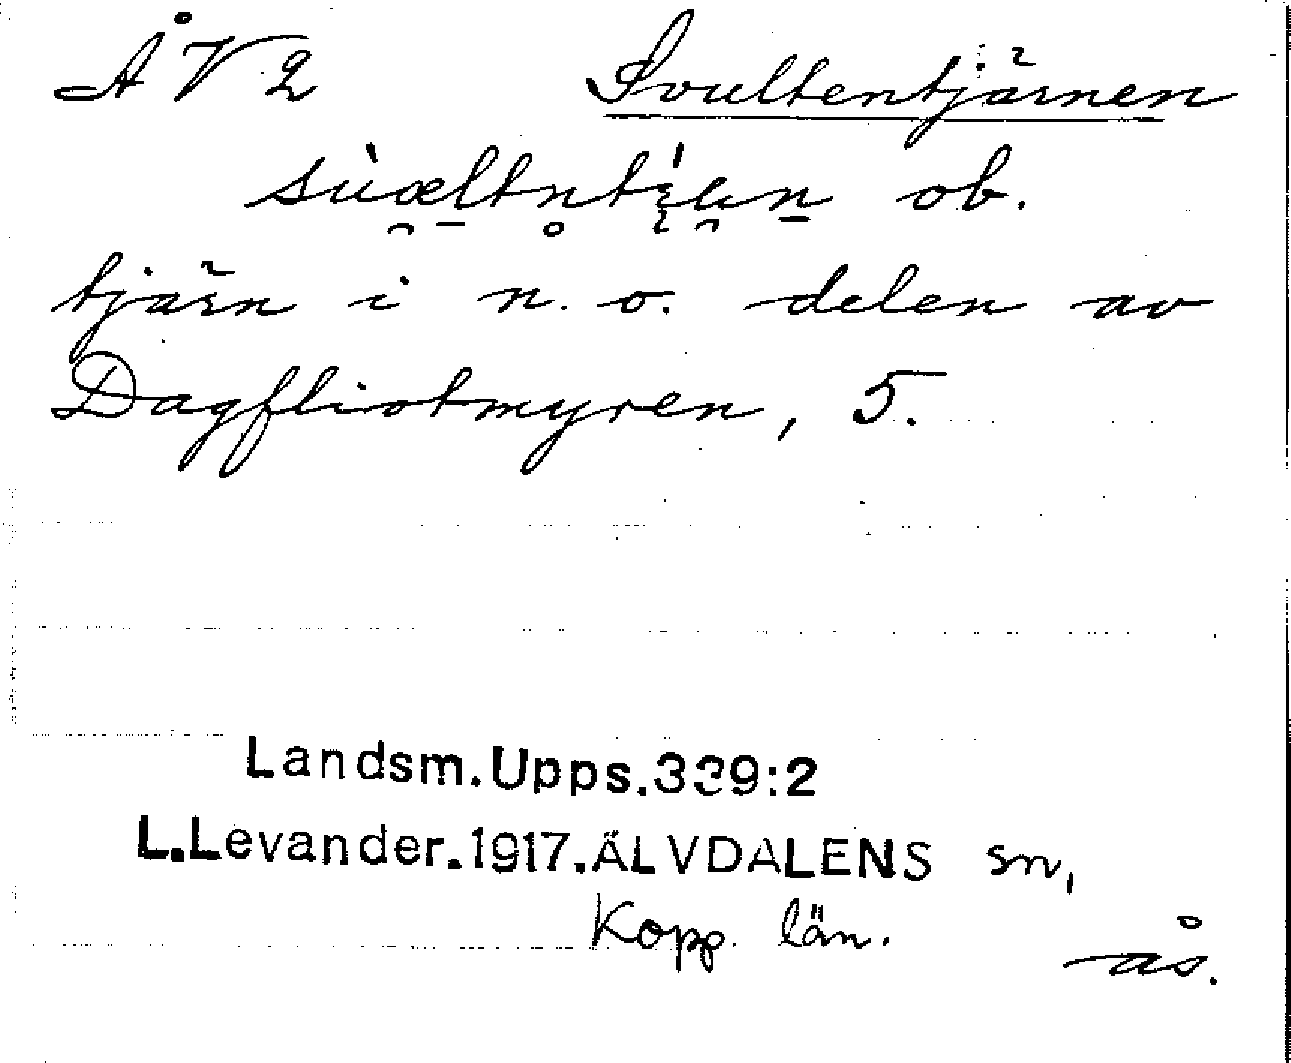 ÅV2 Svultentjärnen
ob.
tjärn i n. o. delen av
Dagfliotmyren, 5.
Landsm.Upps.339:2
L.Levander.1917.ÄLVDALENS sn,
Kopp. län.
ås.